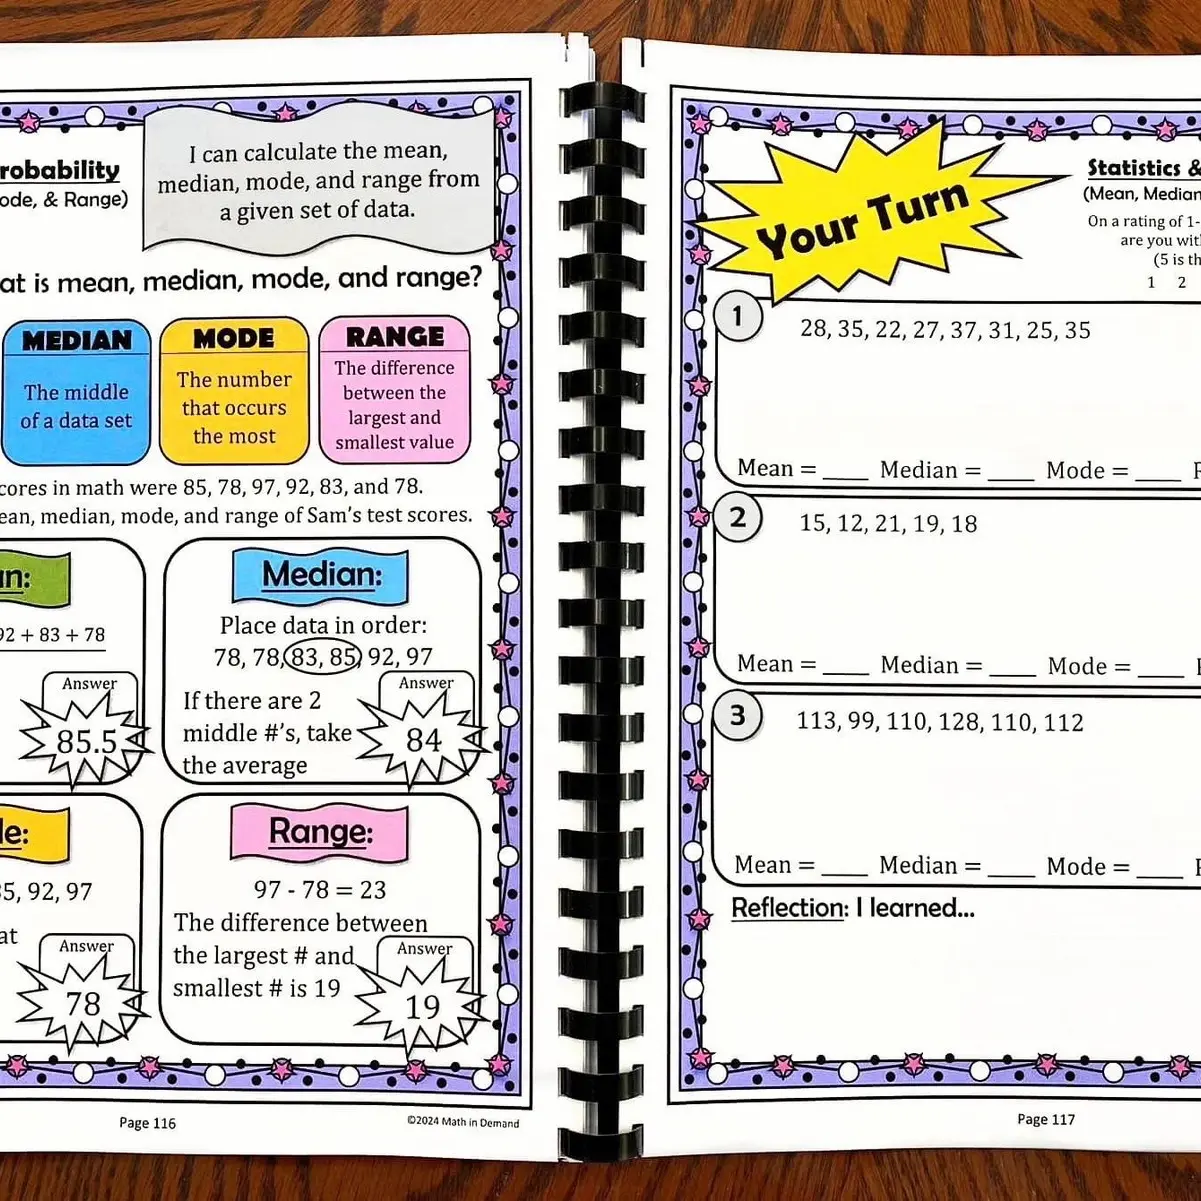 robability
ode, & Range)
I can calculate the mean,
median, mode, and range from
a given set of data.
at is mean, median, mode, and range?
MEDIAN
The middle
of a data set
MODE
The number
that occurs
the most
RANGE
The difference
between the
largest and
smallest value
cores in math were 85, 78, 97, 92, 83, and 78.
ean, median, mode, and range of Sam's test scores.
n:
92 + 83 + 78
Answer
85.5
Median:
Place data in order:
78, 78, 83, 85, 92, 97
If there are 2
middle #'s, take
the average
Answer
84
le:
85, 92, 97
at
Answer
78
Range:
97 - 78 = 23
The difference between
the largest # and
smallest # is 19
Answer
19
Page 116
©2024 Math in Demand
Your Turn
Statistics &
(Mean, Median
On a rating of 1-
are you wit
(5 is th
1 2
1
28, 35, 22, 27, 37, 31, 25, 35
Mean = ____ Median = ____ Mode = ____ R
2
15, 12, 21, 19, 18
Mean = ____ Median = ____ Mode = ____ R
3
113, 99, 110, 128, 110, 112
Mean = ____ Median = ____ Mode = ____ R
Reflection: I learned...
Page 117